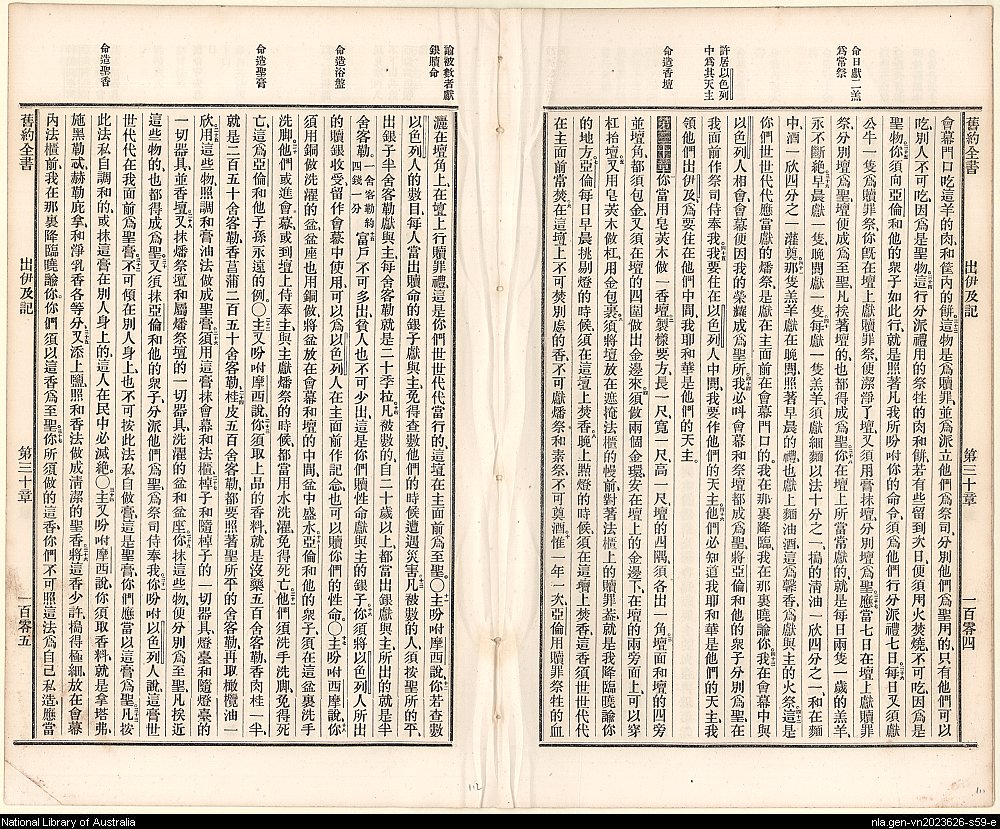 命日獻二羔
爲常祭
許居以色列
中爲其天主
命造香壇
舊約全書 出伊及記 第三十章 一百零四
會幕門口吃這羊的肉和筐內的餅這物是爲贖罪並爲派立他們爲祭司分別他們爲聖用的只有他們可以
吃別人不可吃因爲是聖物這行分派禮用的祭牲的肉和餅若有些留到次日便須用火焚燒不可吃因爲是
聖物你須向亞倫和他的衆子如此行就是照著凡我所吩咐你的命令須爲他們行分派禮七日每日又須獻
公牛一隻爲贖罪祭你旣在壇上獻贖罪祭便潔淨了壇又須用膏抹壇分別壇爲聖應當七日在壇上獻贖罪
祭分別壇爲聖壇便成爲至聖凡挨著壇的也都得成爲聖你在壇上所當常獻的就是每日兩隻一歲的羔羊
永不斷絶早晨獻一隻晚間獻一隻每獻一隻羔羊須獻細麵以法十分之一搗的淸油一欣四分之一和在麵
中酒一欣四分之一灌奠那隻羔羊獻在晚間照著早晨的禮也獻上麵油酒這爲馨香爲獻與主的火祭這是
你們世世代代應當獻的燔祭是獻在主面前在會幕門口的我在那裏降臨我在那裏曉諭你我在會幕中與
以色列人相會會幕便因我的榮耀成爲聖所我必叫會幕和祭壇都成爲聖將亞倫和他的衆子分別爲聖在
我面前作祭司侍奉我我要住在以色列人中間我要作他們的天主他們必知道我耶和華是他們的天主我
領他們出伊及爲要住在他們中間我耶和華是他們的天主
第三十章你當用皂莢木做一香壇製樣要方長一尺寬一尺高一尺壇的四隅須各出一角壇面和壇的四旁
並壇角都須包金又須在壇的四圍做出金邊來須做兩個金環安在壇上的金邊下在壇的兩旁面上可以穿
杠抬壇又用皂莢木做杠用金包裹須將壇放在遮掩法櫃的幔前對著法櫃上的贖罪蓋就是我降臨曉諭你
的地方亞倫每日早晨挑剔燈的時候須在這壇上焚香晚上點燈的時候須在這壇上焚香這香須世世代代
在主面前當焚在這壇上不可焚別處的香不可獻燔祭和素祭不可奠酒惟一年一次亞倫用贖罪祭牲的血
論被數者獻
銀贖命
命造浴盤
命造聖膏
命造聖香
灑在壇角上在壇上行贖罪禮這是你們世世代代當行的這壇在主面前爲至聖〇主吩咐摩西說你若查數
以色列人的數目每人當出贖命的銀子獻與主免得查數他們的時候遭遇災害凡被數的人須按聖所的平
出銀子半舍客勒獻與主每舍客勒就是二十季拉凡被數的自二十歲以上都當出銀獻與主所出的就是半
舍客勒一舍客勒約四錢一分富戶不可多出貧人也不可少出這是你們贖性命獻與主的銀子你須將以色列人所出
的贖銀收受留作會幕中使用可以爲以色列人在主面前作記念也可以贖你們的性命〇主吩咐西摩說你
須用銅做洗濯的盆盆座也用銅做將盆放在會幕和壇的中間盆中盛水亞倫和他的衆子須在這盆裏洗手
洗脚他們或進會幕或到壇上侍奉主與主獻燔祭的時候都當用水洗濯免得死亡他們須洗手洗脚免得死
亡這爲亞倫和他子孫永遠的例〇主又吩咐摩西說你須取上品的香料就是沒藥五百舍客勒香肉桂一半
就是二百五十舍客勒香菖蒲二百五十舍客勒桂皮五百舍客勒都要照著聖所平的舍客勒再取橄欖油一
欣用這些物照調和膏油法做成聖膏須用這膏抹會幕和法櫃棹子和隨棹子的一切器具燈臺和隨燈臺的
一切器具並香壇又抹燔祭壇和屬燔祭壇的一切器具洗濯的盆和盆座你抹這些物便分別爲至聖凡挨近
這些物的也都得成爲聖又須抹亞倫和他的衆子分派他們爲聖爲祭司侍奉我你吩咐以色列人說這膏世
世代代在我面前爲聖膏不可傾在別人身上也不可按此法私自做膏這是聖膏你們應當以這膏爲聖凡按
此法私自調和的或抹這膏在別人身上的這人在民中必滅絶〇主又吩咐摩西說你須取香料就是拿塔弗
施黑勒忒赫勒庇拿和淨乳香各等分又添上鹽照和香法做成淸潔的聖香將這香少許搗得極細放在會幕
內法櫃前我在那裏降臨曉諭你你們須以這香爲至聖你所須做的這香你們不可照這法爲自己私造應當
舊約全書 出伊及記 第三十章 一百零五
112
111
National Library of Australia
nla.gen-vn2023626-s59-e